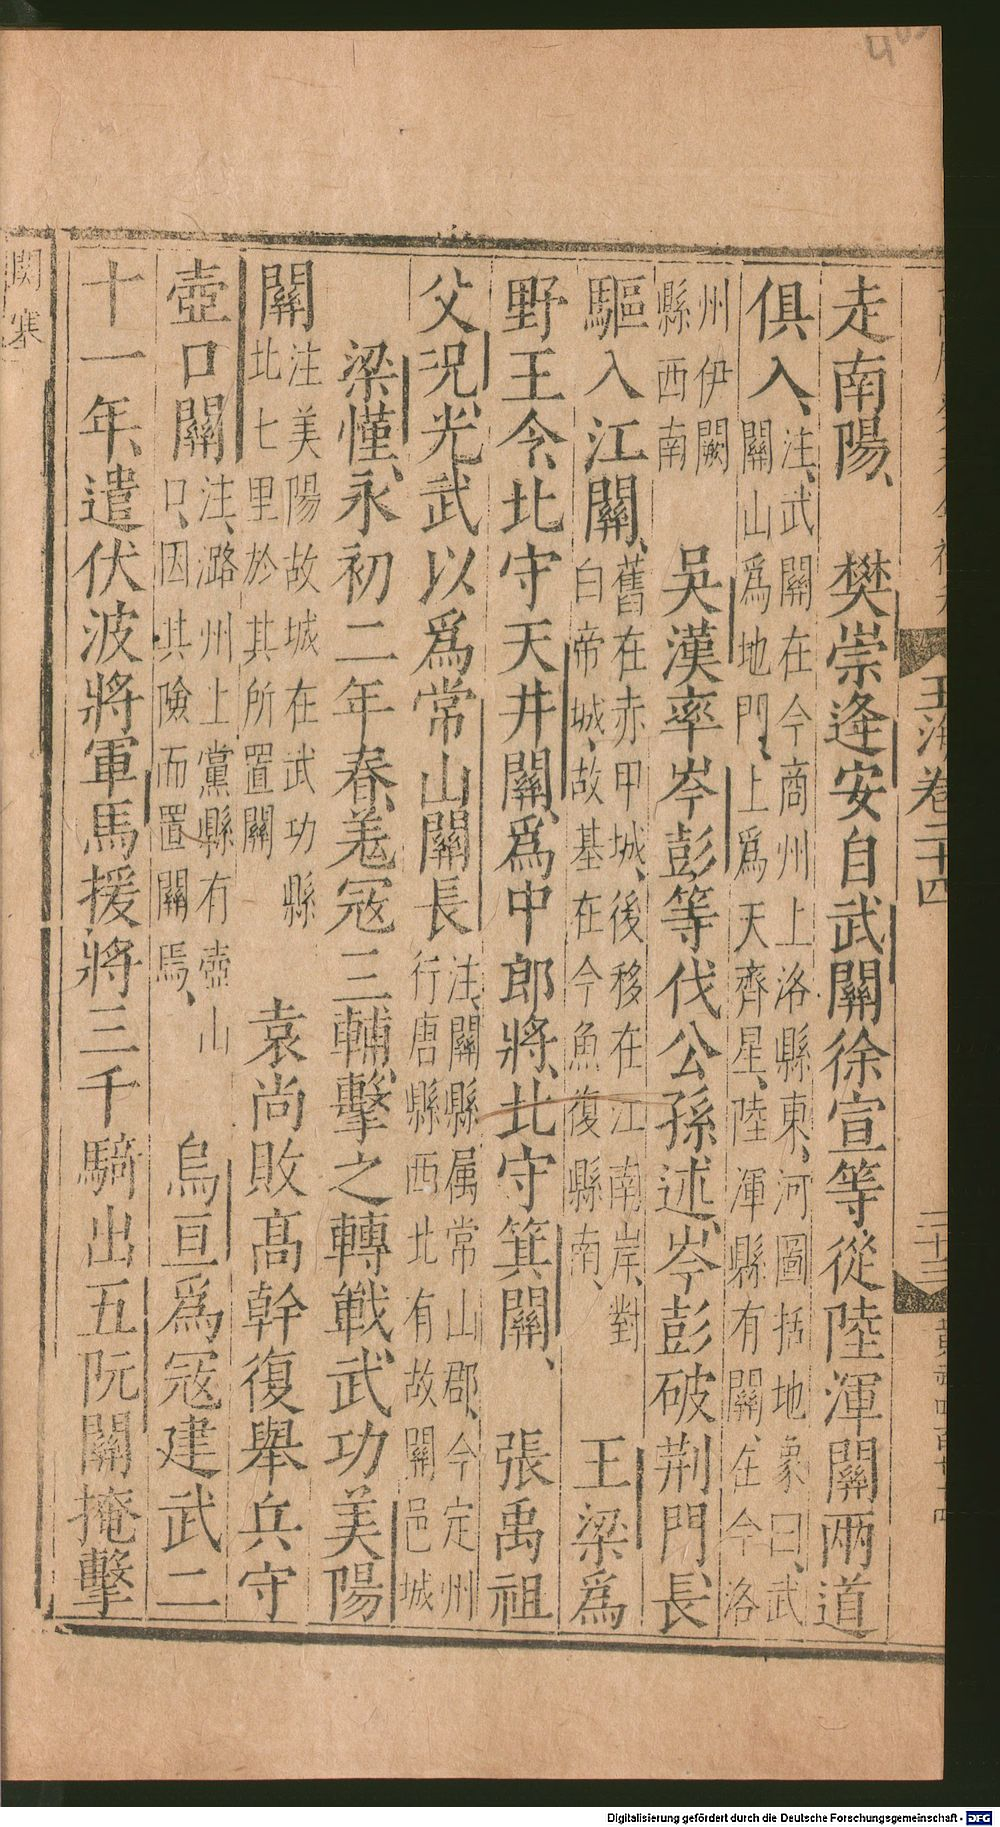 玉海卷二十四
二十三
走南陽、樊崇逄安自武關徐宣等從陸渾關兩道
俱入、注、武關在今商州上洛縣東、河圖括地象曰、武
關山爲地門、上爲天齊星、陸渾縣有關、在今洛
州伊闕
縣西南
吳漢率岑彭等伐公孫述、岑彭破荆門、長
驅入江關、舊在赤甲城、後移在江南岸、對
白帝城、故基在今魚復縣南、
王梁爲
野王令、北守天井關、爲中郎將、北守箕關、張禹祖
父況、光武以爲常山關長注、關縣属常山郡、今定州
行唐縣西北有故關邑城
梁慬、永初二年春、羗冦三輔、擊之轉戰、武功美陽
關注美陽故城在武功縣
北七里於其所置關
袁尚敗高幹復舉兵守
壺口關注、潞州上黨縣有壺山
口、因其險而置關焉、
烏亘爲冦建武二
十一年、遣伏波將軍馬援將三千騎出五阮關掩擊
関塞
Digitalisierung gefördert durch die Deutsche Forschungsgemeinschaft - DFG